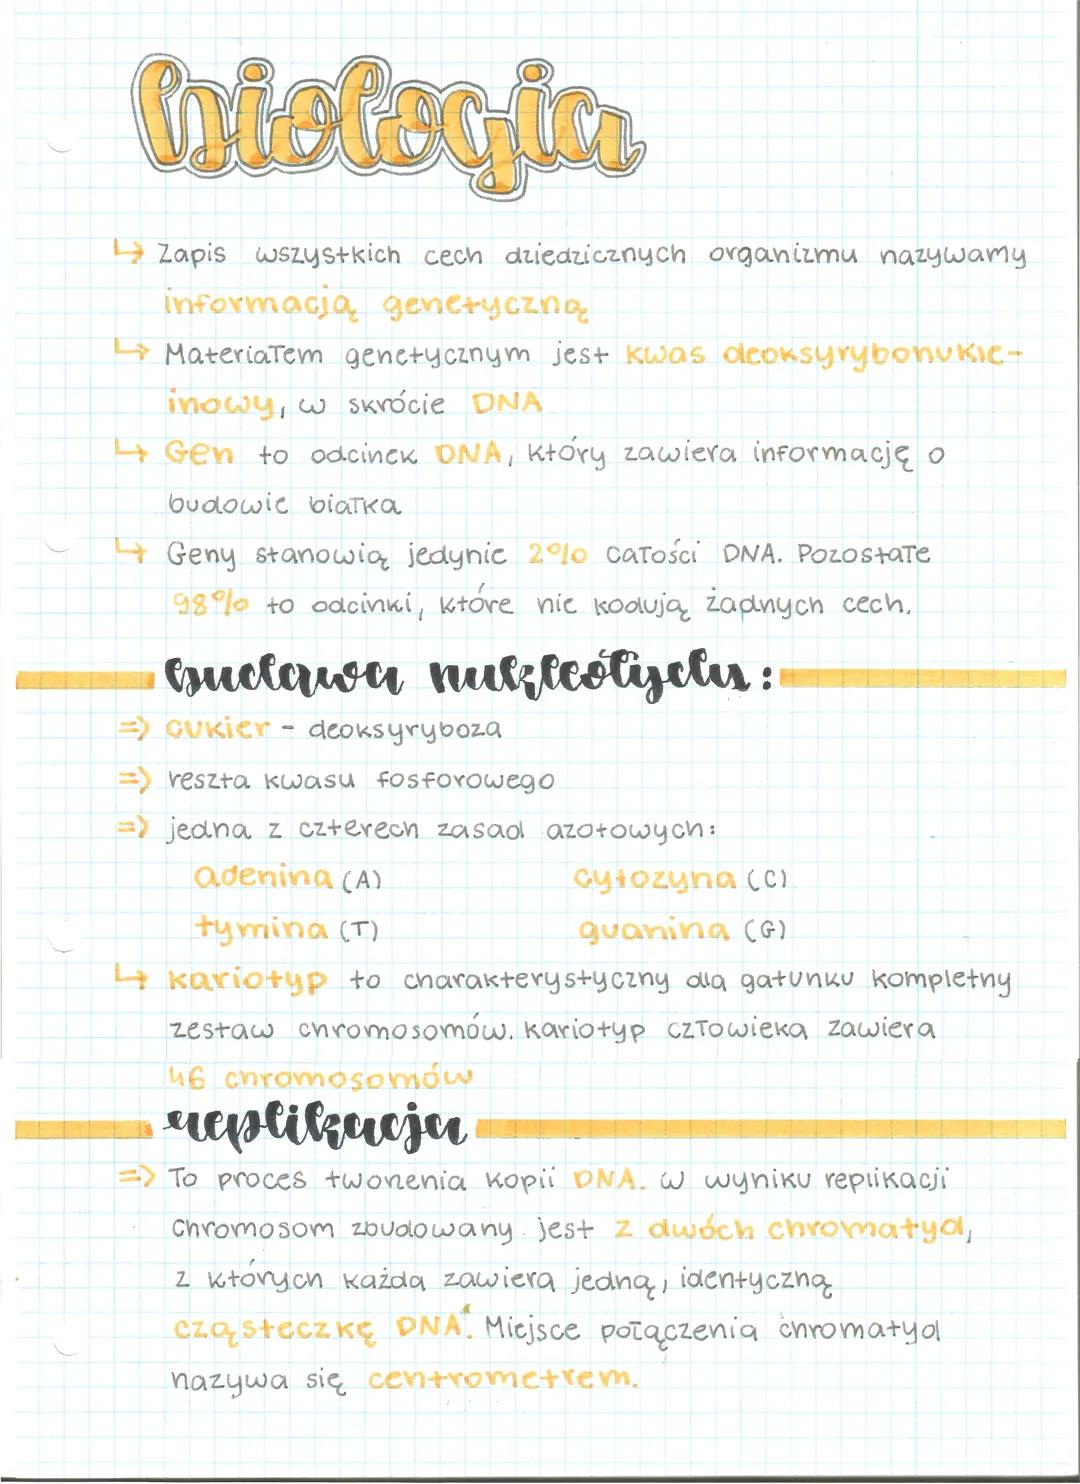 biologia
↳ Zapis wszystkich cech dziedzicznych organizmu nazywamy
informacją genetyczną
↳ Materiałem genetycznym jest kwas deoksyrybonukle-
inowy, w skrócie DNA
↳ Gen to odcinek DNA, który zawiera informację o
budowie białka
↳ Geny stanowią jedynie 2% całości DNA. Pozostałe
98% to odcinki, które nie kodują żadnych cech.
budowa nukleotydu:
=> cukier - deoksyryboza
=> reszta kwasu fosforowego
=> jedna z czterech zasad azotowych:
adenina (A) cytozyna (C)
tymina (T) guanina (G)
↳ kariotyp to charakterystyczny dla gatunku kompletny
zestaw chromosomów. kariotyp człowieka zawiera
46 chromosomów
replikacja
=> To proces tworzenia kopii DNA. W wyniku replikacji
chromosom zbudowany jest z dwóch chromatyd,
z których każda zawiera jedną, identyczną
cząsteczkę DNA. Miejsce połączenia chromatyd
nazywa się centrometrem.